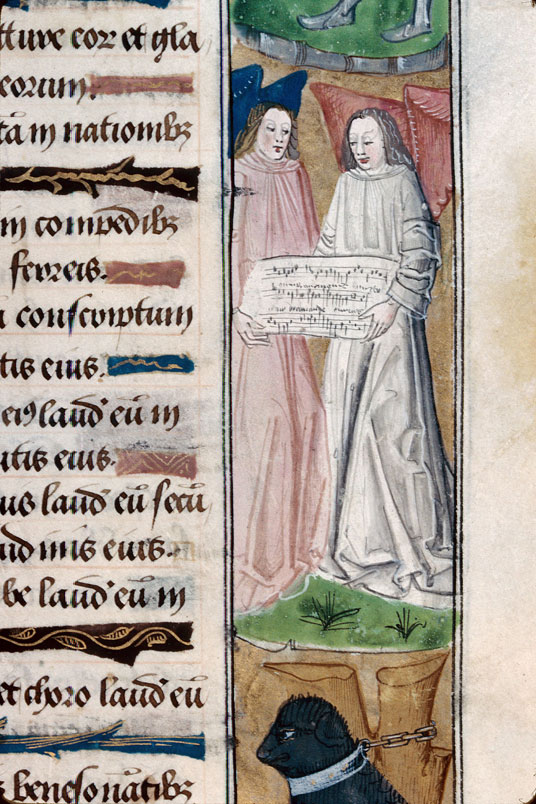 tture eor et gla
eorum.
ta in nationibꝫ
in compedibꝫ
ferreis.
conscriptum
tis eius.
eiꝰ laud' eū in
utis eius.
us laud' eū secū
udinis eius.
be laud' eū in
et choro laud' eū
benesonātibꝫ